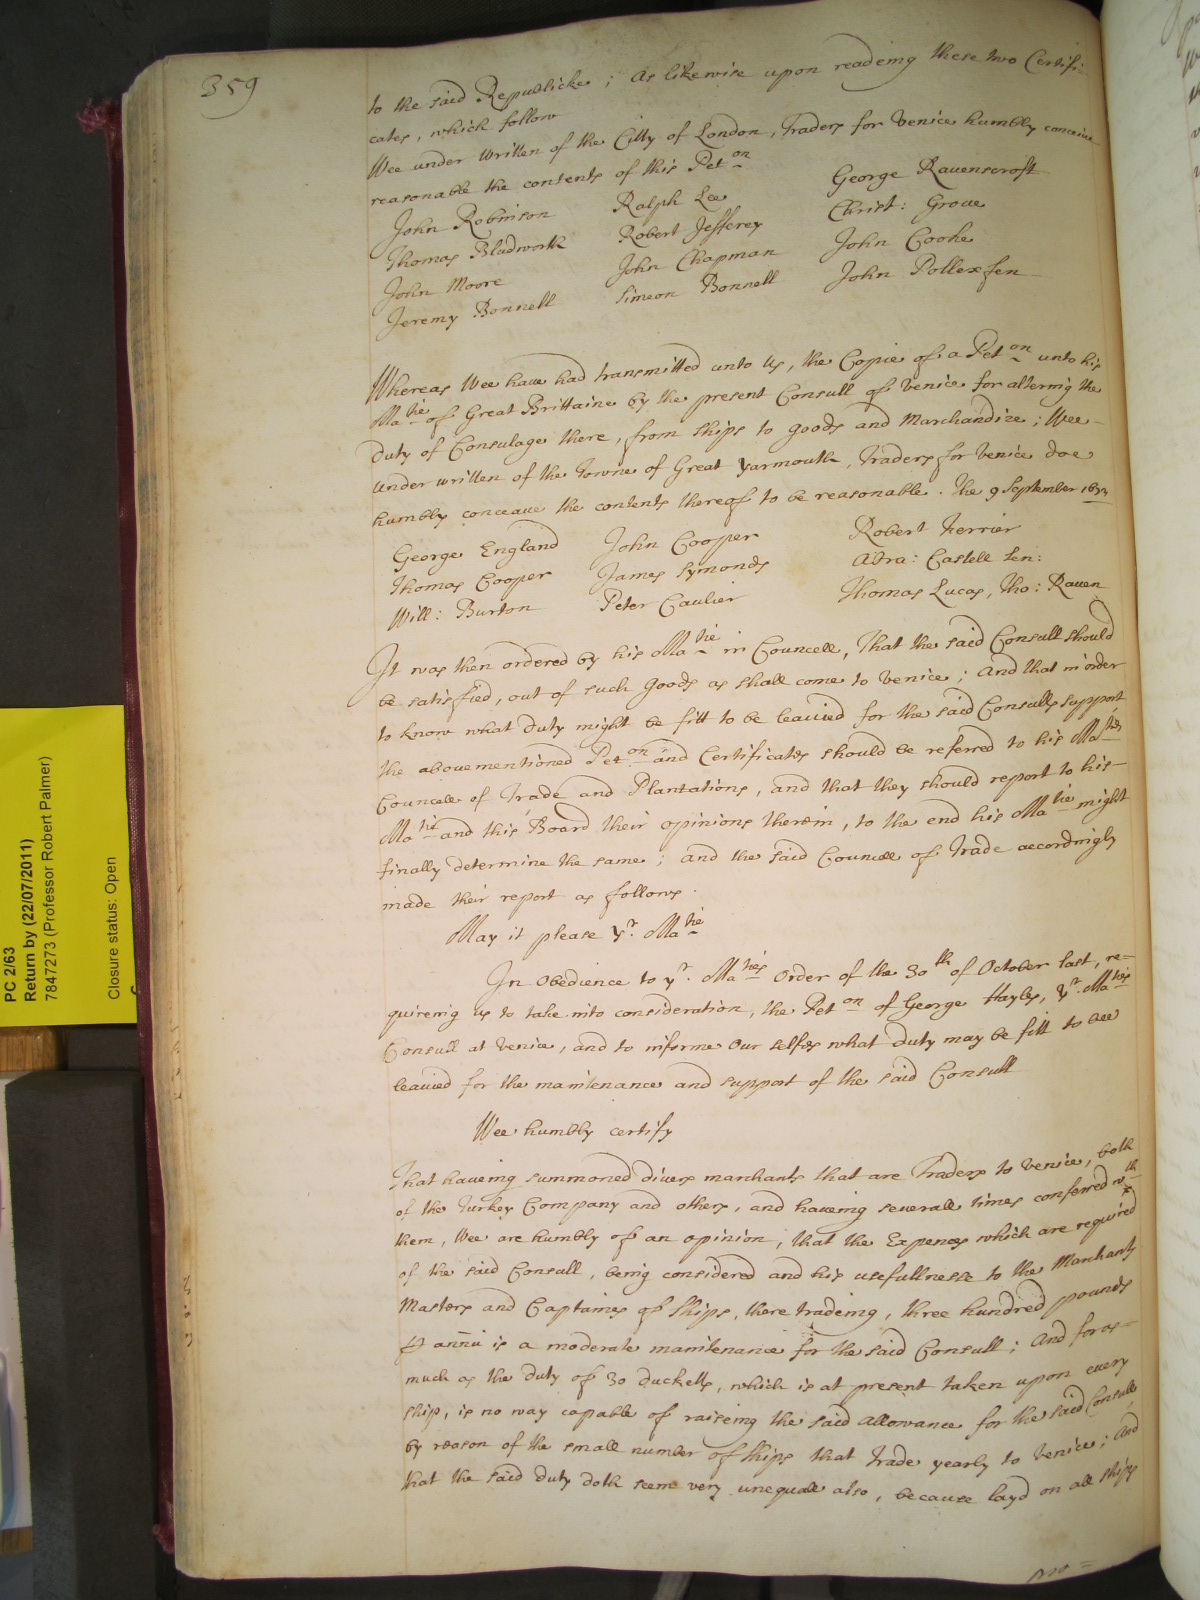 359
to the said Republicke; As likewise upon readeing these two Certifi=
cates, which follow
Wee under written of the Citty of London, Traders for Venice humbly conceive
reasonable the contents of this Pet.on
John Robinson Ralph Lee George Ravenscroft
Thomas Bludwork Robert Jefferey Christ: Grove
John Moore John Chapman John Cooke
Jeremy Bonnell Simeon Bonnell John Pollexfen
Whereas Wee have had transmitted unto Us, the Copie of a Pet.on unto his
Ma.tie of Great Brittaine by the present Consull of Venice for altering the
duty of Consulage there, from ships to goods and Marchandize; Wee
under written of the Towne of Great Yarmouth, Traders for Venice doe
humbly conceave the contents thereof to be reasonable. The 9 September
George England John Cooper Robert Ferrier
Thomas Cooper James Symonds Adra: Castell sen:
Will: Burton Peter Caulier Thomas Lucas, Tho: Raven
It was then ordered by his Ma.tie in Councell, That the said Consull should
be satisfied, out of such goods as shall come to Venice; And that in order
to know what duty might be fitt to be leavied for the said Consulls support
the abovementioned Pet.on and Certificates should be referred to his Ma.ties
Councell of Trade and Plantations, and that they should report to his
Ma.tie and this Board their opinions therein, to the end his Ma.tie might
finally determine the same; and the said Councell of Trade accordingly
made their report as follows.
May it please yr. Ma.tie
In Obedience to yr. Ma.ties Order of the 30th of October last, re=
quireing us to take into consideration, the Pet.on of George Hayles, yr. Ma.ties
Consull at Venice, and to informe Our selfes what duty may be fitt to bee
leavied for the maintenance and support of the said Consull
Wee humbly certify
That haveing summoned divers marchants that are Traders to Venice, both
of the Turkey Company and others, and haveing severall times conferred wth
them, Wee are humbly of an opinion, that the Expences which are required
of the said Consull, being considered and his usefullnesse to the Marchants
Masters and Captaines of ships, there tradeing, three hundred pounds
₽ annū is a moderate maintenance for the said Consull; And foras=
much as the duty of 30 ducketts, which is at present taken upon every
ship, is no way capable of raiseing the said allowance for the said Consull,
by reason of the small number of ships that trade yearly to Venice; And
that the said duty doth seem very unequall also, because layd on all ships
PC 2/63
Return by (22/07/2011)
7847273 (Professor Robert Palmer)
Closure status: Open